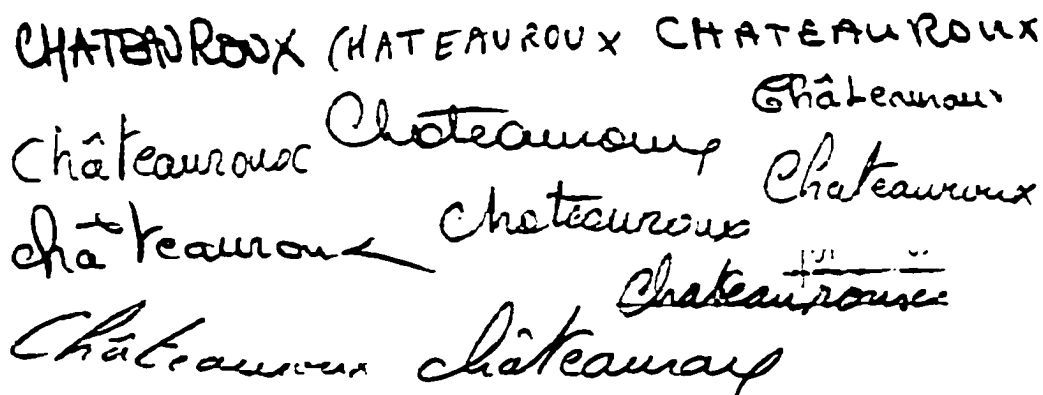 CHATEAUROUX CHATEAUROUX CHATEAUROUX
Châteauroux
Châteauroux Chateauroux
Chateauroux
Châteauroux Chateauroux
Chateauroux
Châteauroux châteauroux